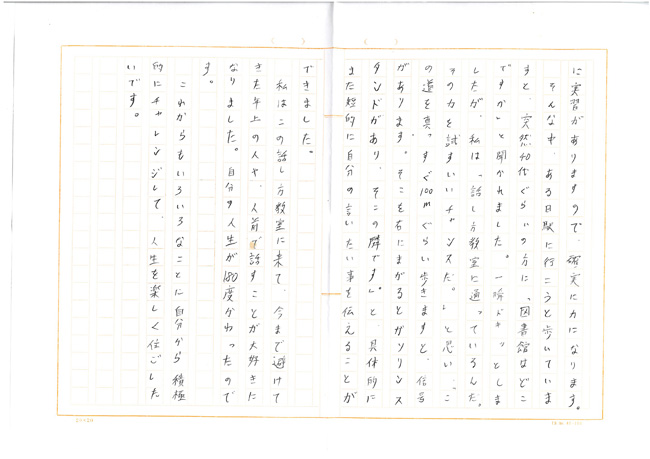 に実習がありますので、確実に力になります。
そんな中、ある日駅に行こうと歩いていま
すと、突然40代ぐらいの方に「図書館はどこ
ですか」と聞かれました。一瞬ドキッとしま
したが、私は「話し方教室に通っているんだ。
その力を試すいいチャンスだ。」と思い、「こ
の道を真っすぐ100mぐらい歩きますと、信号
があります。そこを右にまがるとガソリンス
タンドがあり、そこの隣です。」と、具体的に
また短的に自分の言いたい事を伝えることが
できました。
私はこの話し方教室に来て、今まで避けて
きた年上の人や、人前で話すことが大好きに
なりました。自分の人生が180度かわったので
す。
これからもいろいろなことに自分から積極
的にチャレンジして、人生を楽しく過ごした
いです。